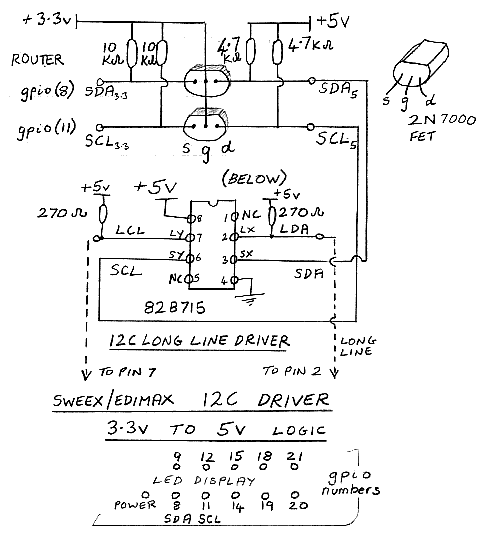 +3.3v +5v
10 KΩ 10 KΩ 4.7 KΩ 4.7KΩ
ROUTER
gpio(8) SDA3.3 SDA5
gpio(11) SCL3.3 SCL5
s g d
s g d
2N7000
FET
(BELOW)
+5v +5v +5v
270Ω 8 1 NC 270Ω
LCL LY 7 2 LX LDA
SCL SY 6 3 SX SDA
NC 5 4
82B715
I2C LONG LINE DRIVER
LONG
LINE
TO PIN 7 TO PIN 2
SWEEX/EDIMAX I2C DRIVER
3.3v TO 5v LOGIC
9 12 15 18 21
LED DISPLAY
gpio
numbers
POWER 8 11 14 19 20
SDA SCL